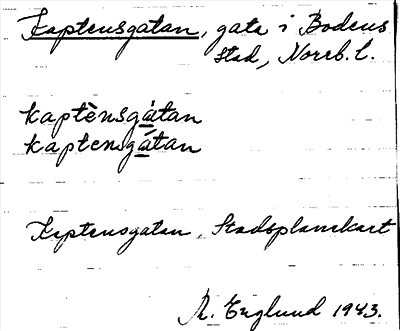 Kaptensgatan, gata i Bodens
stad, Norrb. l.
kaptènsgátan
kaptensgátan
Kaptensgatan, Stadsplanekart
R. Englund 1943.